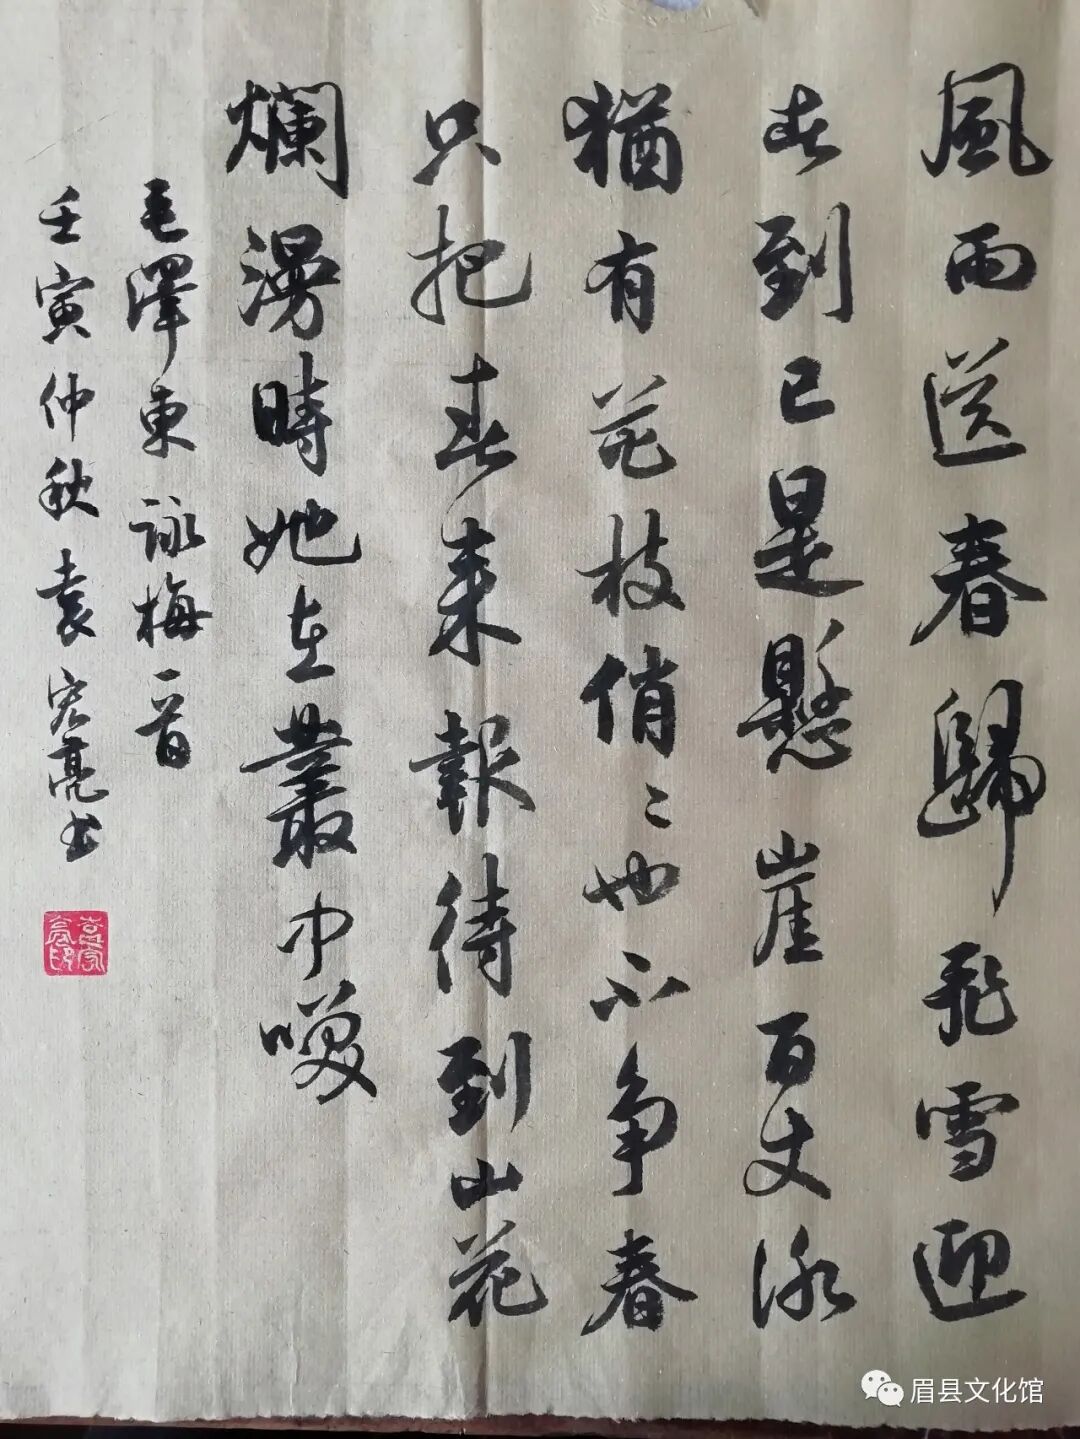 風雨送春歸飛雪迎
春到已是懸崖百丈冰
猶有花枝俏〻也不争春
只把春來報待到山花
爛漫時她在叢中笑
毛澤東詠梅一首
壬寅仲秋袁宏亮书
袁宏亮印
眉县文化馆